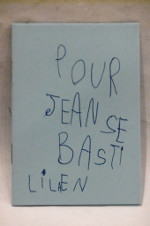 POUR
JEAN SE
BASTI
LILEN